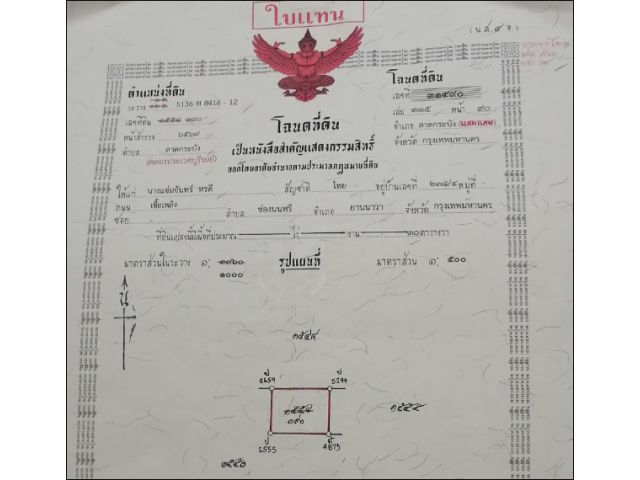 ใบแทน
(น.ส.๔ จ)
ตำแหน่งที่ดิน
ระวาง 5136 III 8416 - 12
เลขที่ดิน ๑๙๐
หน้าสำรวจ ๖๕๖๙
ตำบล ลาดกระบัง
(คลองประเวศบุรีรมย์)
โฉนดที่ดิน
เลขที่ ๓๑๕๙๐
เล่ม ๓๑๕ หน้า ๙๐
อำเภอ ลาดกระบัง (แสนแสบ)
จังหวัด กรุงเทพมหานคร
โฉนดที่ดิน
เป็นหนังสือสำคัญแสดงกรรมสิทธิ์
ออกโดยอาศัยอำนาจตามประมวลกฎหมายที่ดิน
ให้แก่ นางแช่มจันทร์ หรดี สัญชาติ ไทย อยู่บ้านเลขที่ ๒๓๔/๔ หมู่ที่
ถนน เชื้อเพลิง
ซอย ตำบล ช่องนนทรี อำเภอ ยานนาวา จังหวัด กรุงเทพมหานคร
ที่ดินแปลงนี้มีเนื้อที่ประมาณ ไร่ งาน ๓๐ ตารางวา
มาตราส่วนในระวาง ๑: ๑๐๐๐
รูปแผนที่
มาตราส่วน ๑: ๕๐๐
น
๑๕๔๙
ปู 6659
ปู 5299
๑๕๕๔
๑๙๐
๑๕๕๕
ปู 2555
ปู 4675
๑๕๕๐